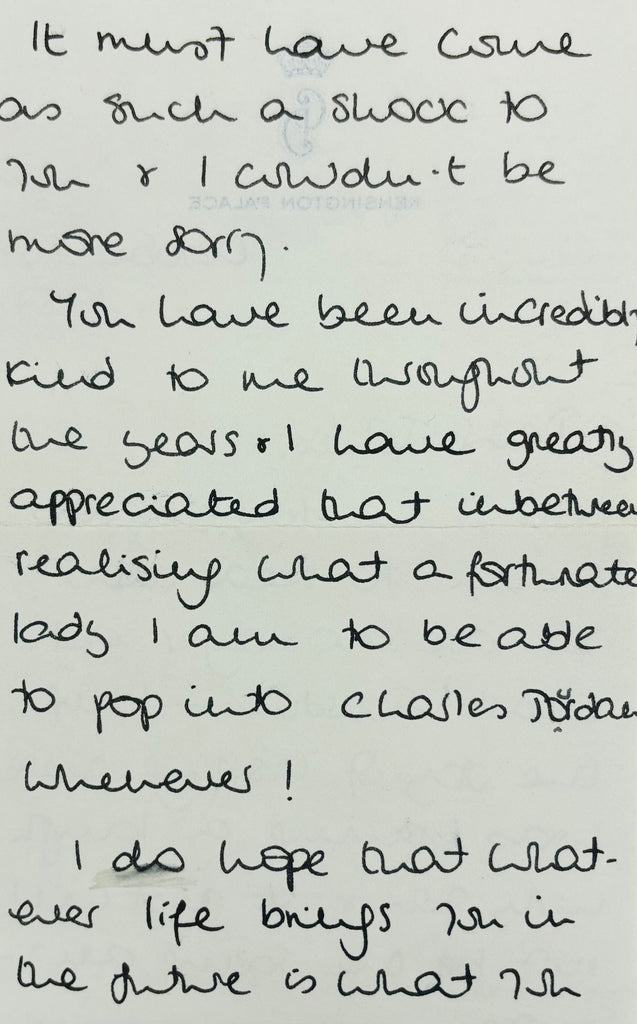 It must have come
as such a shock to
you & I couldn't be
more sorry.
You have been incredibly
kind to me throughout
the years & I have greatly
appreciated that inbetween
realising what a fortunate
lady I am to be able
to pop into Charles Jordan
whenever!
I do hope that what-
ever life brings you in
the future is what you
KENSINGTON PALACE